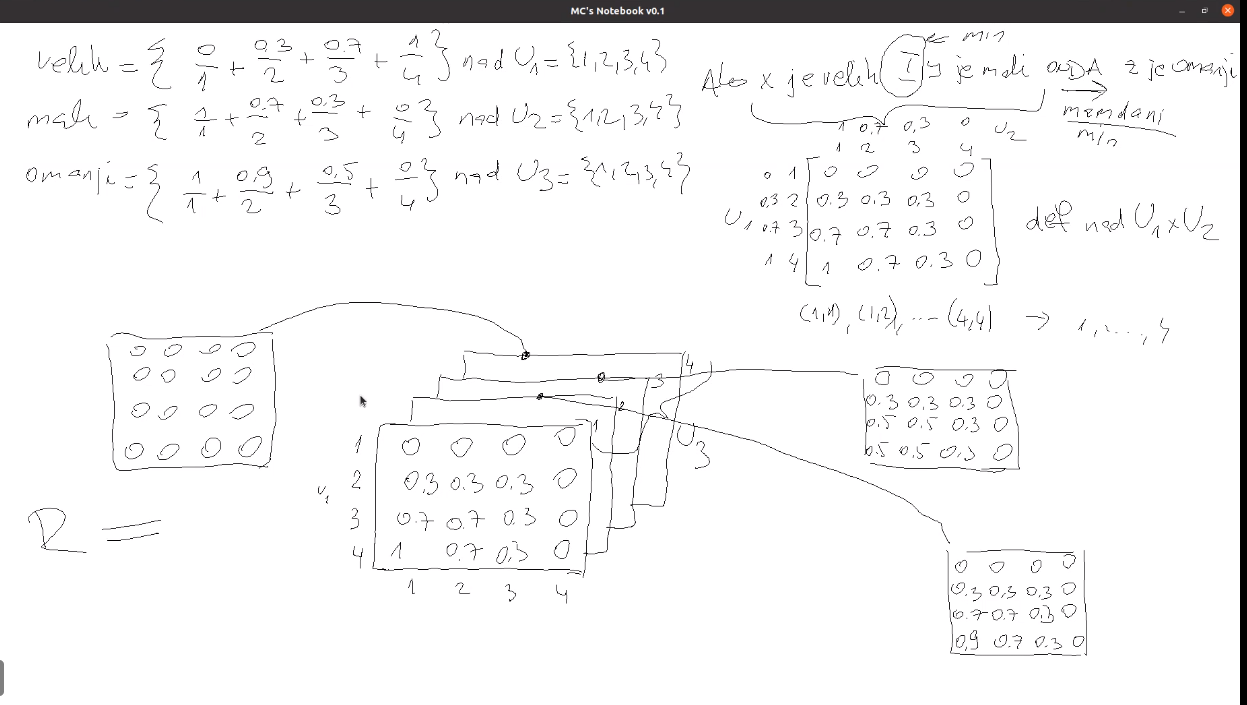 MC's Notebook v0.1
velik = { 0/1 + 0.3/2 + 0.7/3 + 1/4 } nad U1 = {1,2,3,4}
mali = { 1/1 + 0.7/2 + 0.3/3 + 0/4 } nad U2 = {1,2,3,4}
omanji = { 1/1 + 0.9/2 + 0.5/3 + 0/4 } nad U3 = {1,2,3,4}
min
Ako x je velik I y je mali ONDA z je omanji
mamdani
min
1 0.7 0.3 0 U2
1 2 3 4
0 1 0 0 0 0
0.3 2 0.3 0.3 0.3 0
U1 0.7 3 0.7 0.7 0.3 0
1 4 1 0.7 0.3 0
def nad U1 x U2
(1,1), (1,2), ... (4,4) → 1, ..., 4
0 0 0 0
0 0 0 0
0 0 0 0
0 0 0 0
4
3
2
1
U3
1 0 0 0 0
2 0.3 0.3 0.3 0
U1
3 0.7 0.7 0.3 0
4 1 0.7 0.3 0
1 2 3 4
R =
0 0 0 0
0.3 0.3 0.3 0
0.5 0.5 0.3 0
0.5 0.5 0.3 0
0 0 0 0
0.3 0.3 0.3 0
0.7 0.7 0.3 0
0.9 0.7 0.3 0